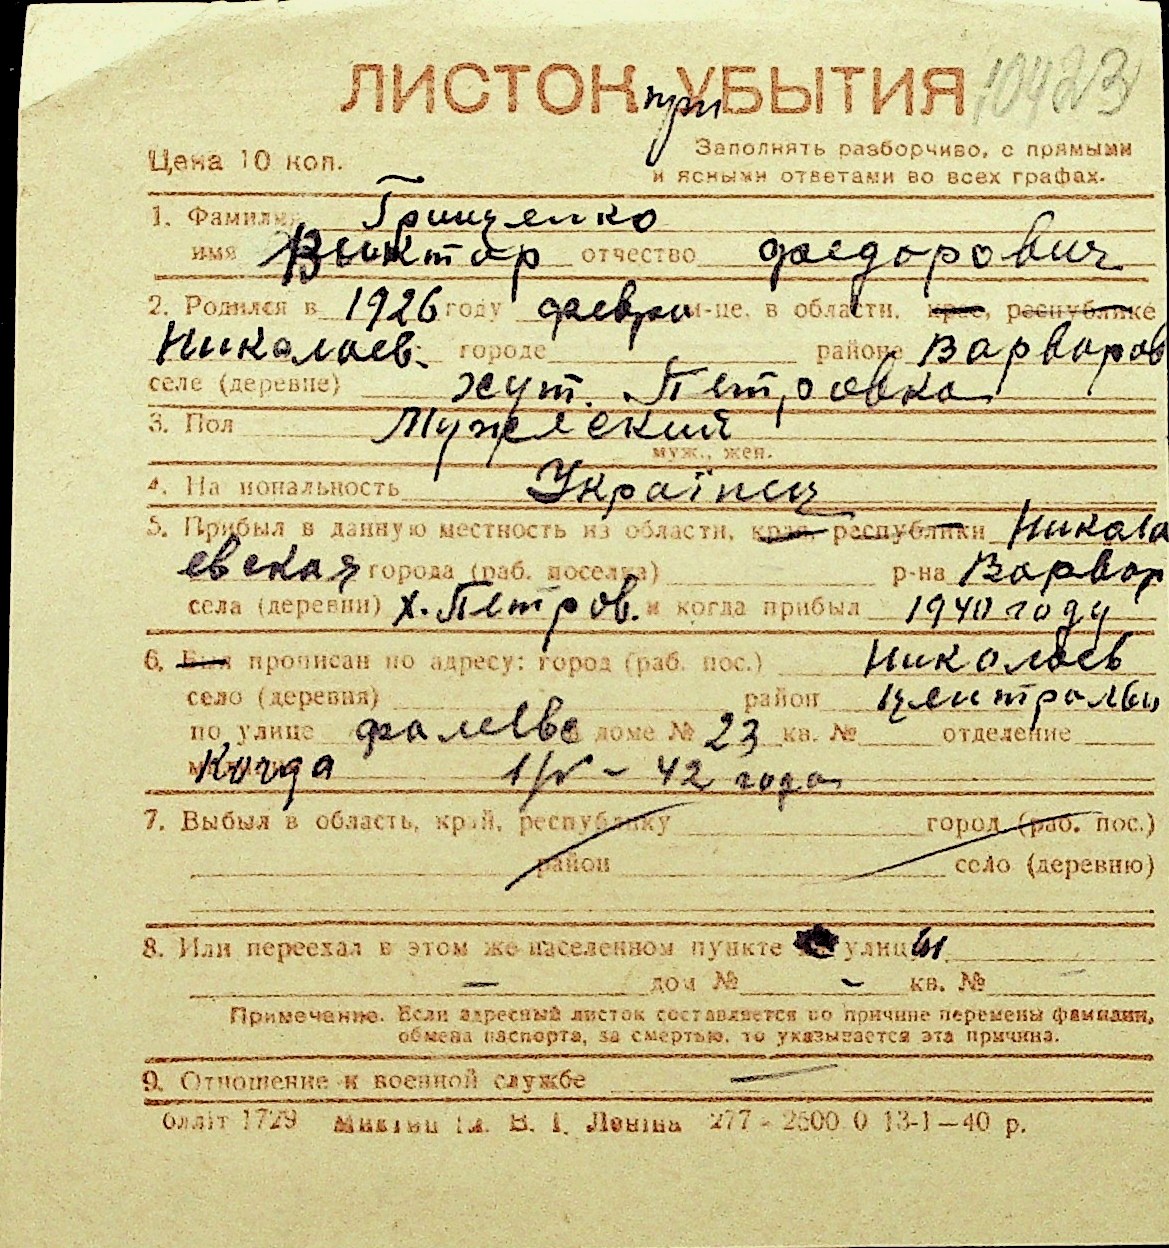 10423
ЛИСТОК при УБЫТИЯ
Цена 10 коп.
Заполнять разборчиво, с прямыми
и ясными ответами во всех графах.
1. Фамилия Грищенко
имя Виктор отчество Федорович
2. Родился в 1926 году февра м-це, в области, крае, республике
Николаев. городе районе Варваров
селе (деревне) хут. Петровка
3. Пол Мужеский
муж., жен.
4. На иональность Українец
5. Прибыл в данную местность из области, края, республики Никола
евская города (раб. поселка) р-на Варвар
села (деревни) х. Петров. и когда прибыл 1940 году
6. Был прописан по адресу: город (раб. пос.) Николаев
село (деревня) район Центральн
по улице Фалеевс доме № 23 кв. № отделение
Когда 1/V - 42 года
7. Выбыл в область, край, республику город (раб. пос.)
район село (деревню)
8. Или переехал в этом же населенном пункте улицы
— дом № - кв. №
Примечание. Если адресный листок составляется по причине перемены фамилии,
обмена паспорта, за смертью, то указывается эта причина.
9. Отношение к военной службе —
блліт 1729 Миколаїв ім. В. І. Леніна 277 - 2500 0 13-1—40 р.